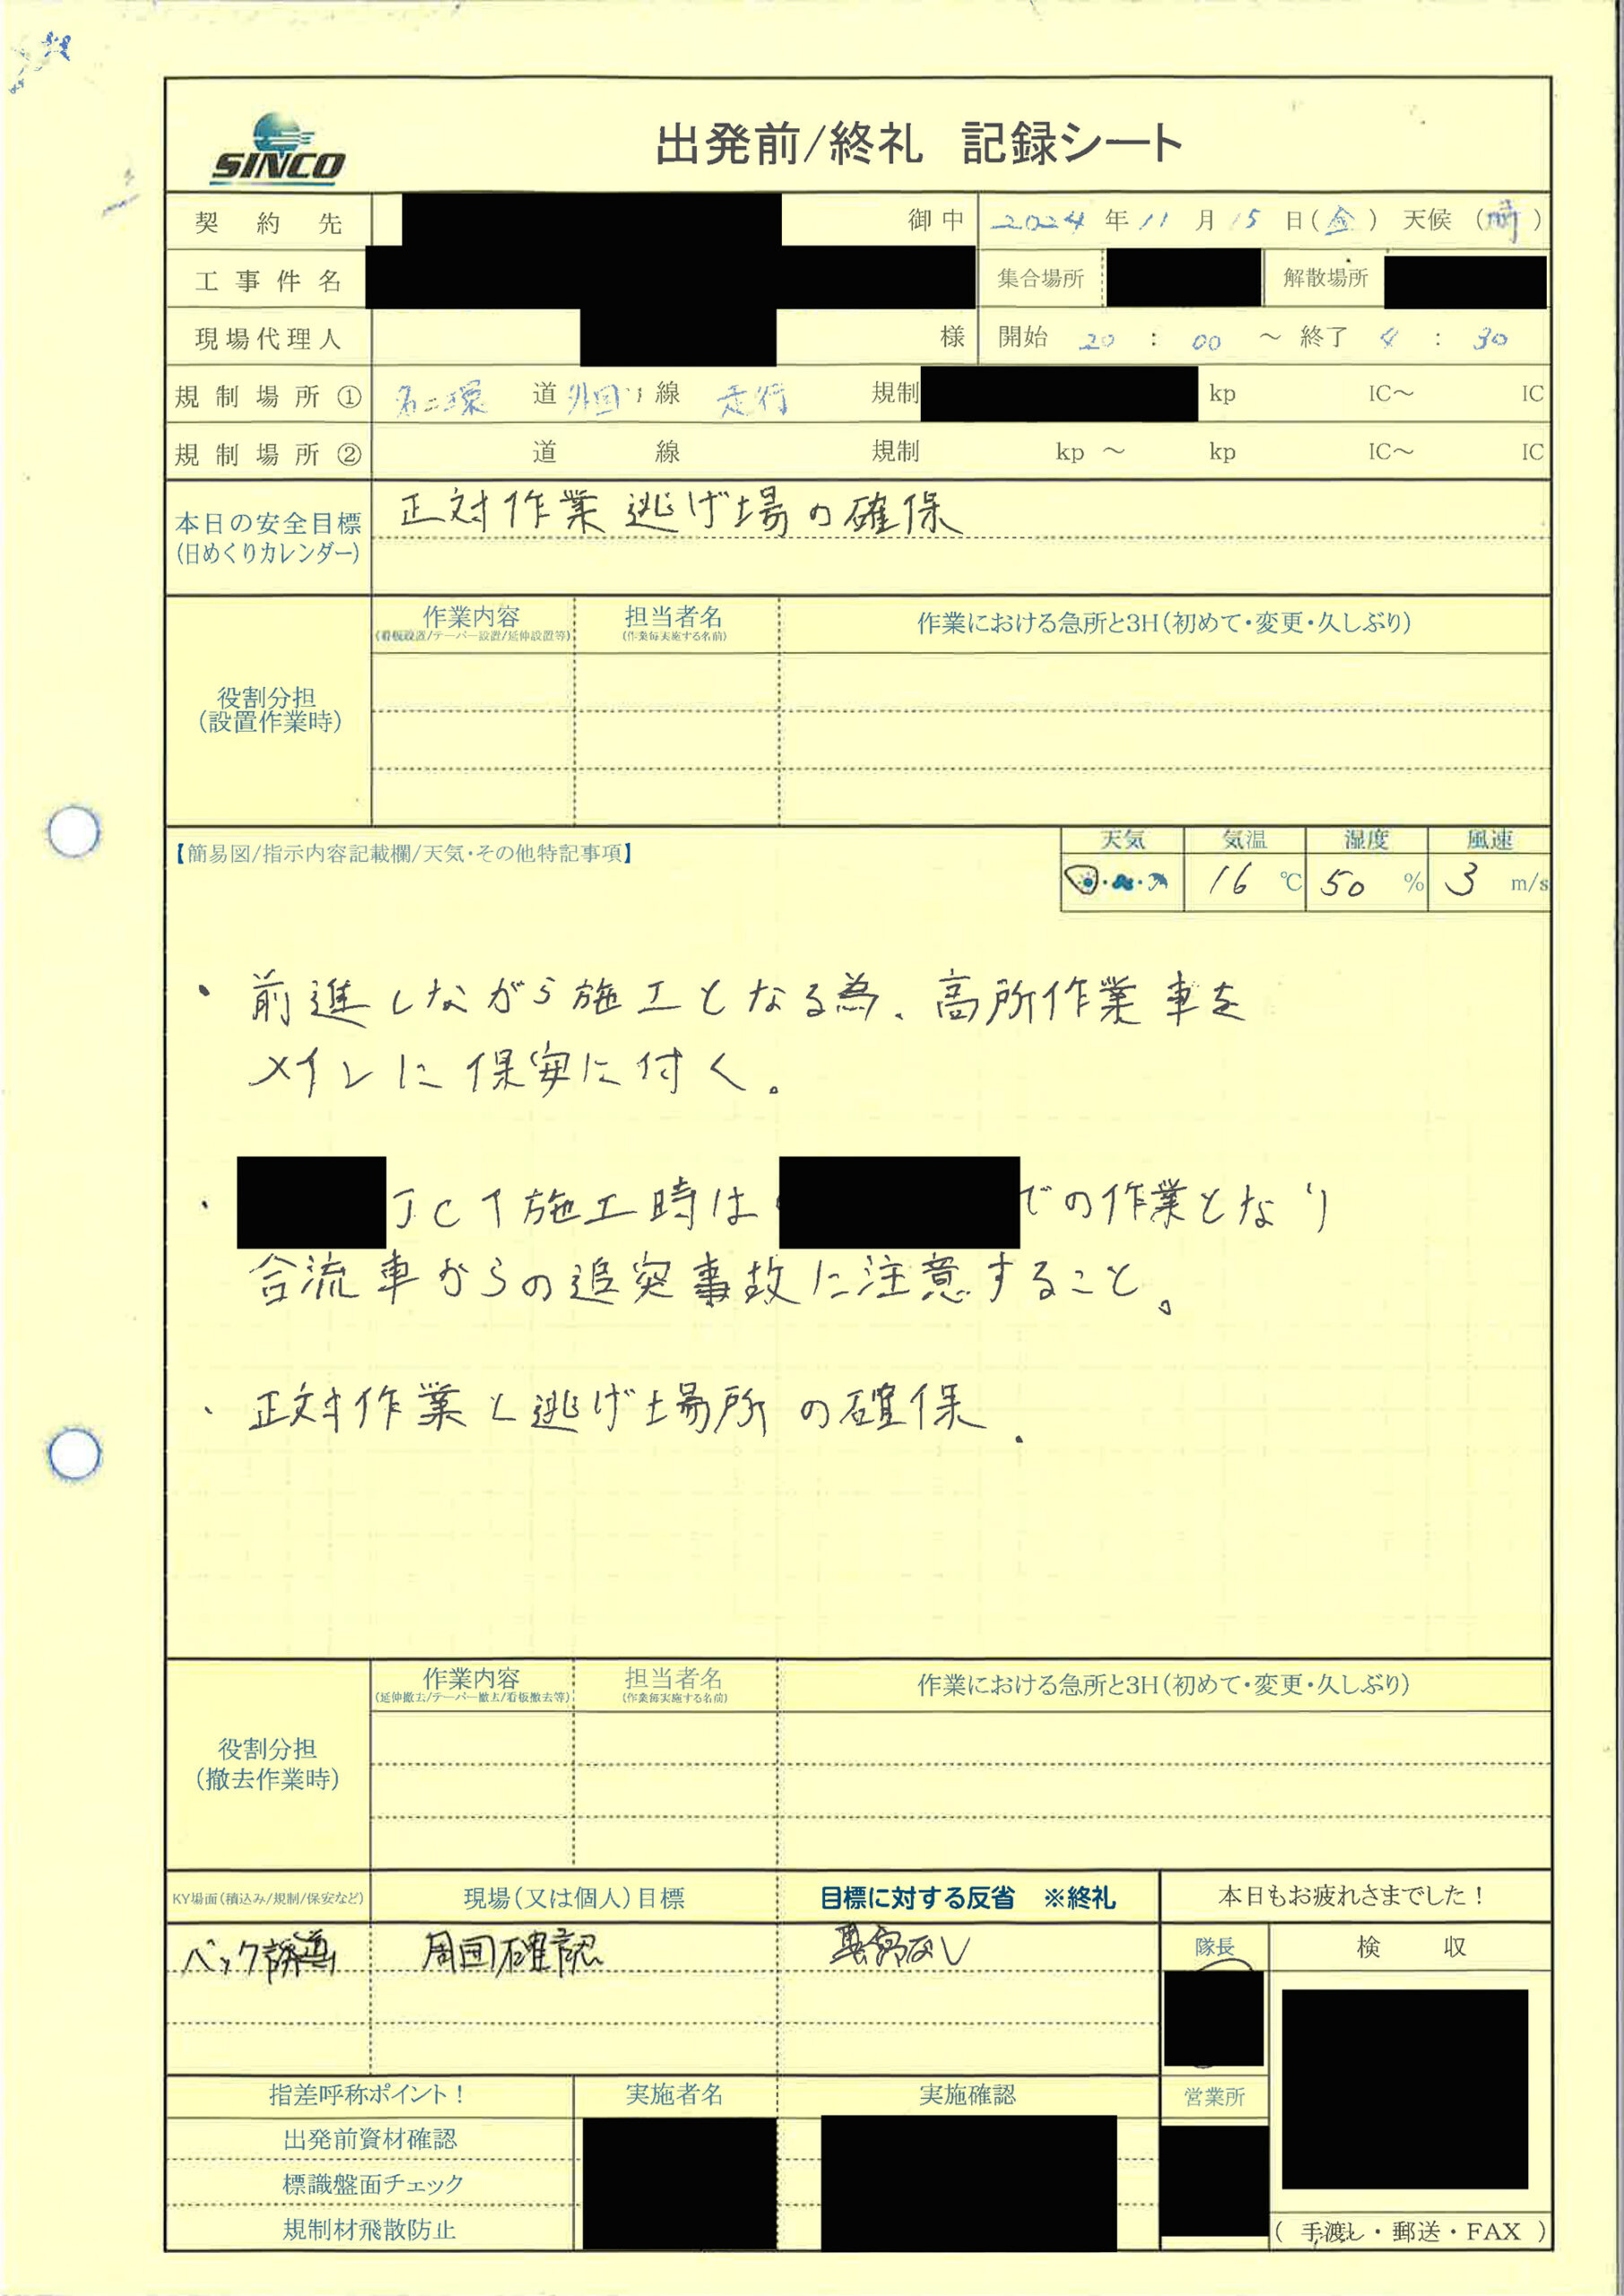 SINCO
出発前/終礼 記録シート
契約先 御中 2024年11月15日(金) 天候(晴)
工事件名 集合場所 解散場所
現場代理人 様 開始 20:00 ～終了 4:30
規制場所① 名二環 道 外回り 線 走行 規制 kp IC～ IC
規制場所② 道 線 規制 kp ～ kp IC～ IC
本日の安全目標 正対作業 逃げ場の確保
(日めくりカレンダー)
作業内容 担当者名 作業における急所と3H(初めて・変更・久しぶり)
(看板設置/テーパー設置/延伸設置等) (作業毎実施する名前)
役割分担
(設置作業時)
【簡易図/指示内容記載欄/天気・その他特記事項】
天気 気温 湿度 風速
16 ℃ 50 % 3 m/s
・前進しながら施工となる為、高所作業車を
メインに保安に付く。
・ JCT施工時は での作業となり
合流車からの追突事故に注意すること。
・正対作業と逃げ場所の確保.
作業内容 担当者名 作業における急所と3H(初めて・変更・久しぶり)
(延伸撤去/テーパー撤去/看板撤去等) (作業毎実施する名前)
役割分担
(撤去作業時)
KY場面(積込み/規制/保安など) 現場(又は個人)目標 目標に対する反省 ※終礼 本日もお疲れさまでした！
バック誘導 周囲確認 異常なし 隊長 検収
指差呼称ポイント！ 実施者名 実施確認 営業所
出発前資材確認
標識盤面チェック
規制材飛散防止
(手渡し・郵送・FAX)